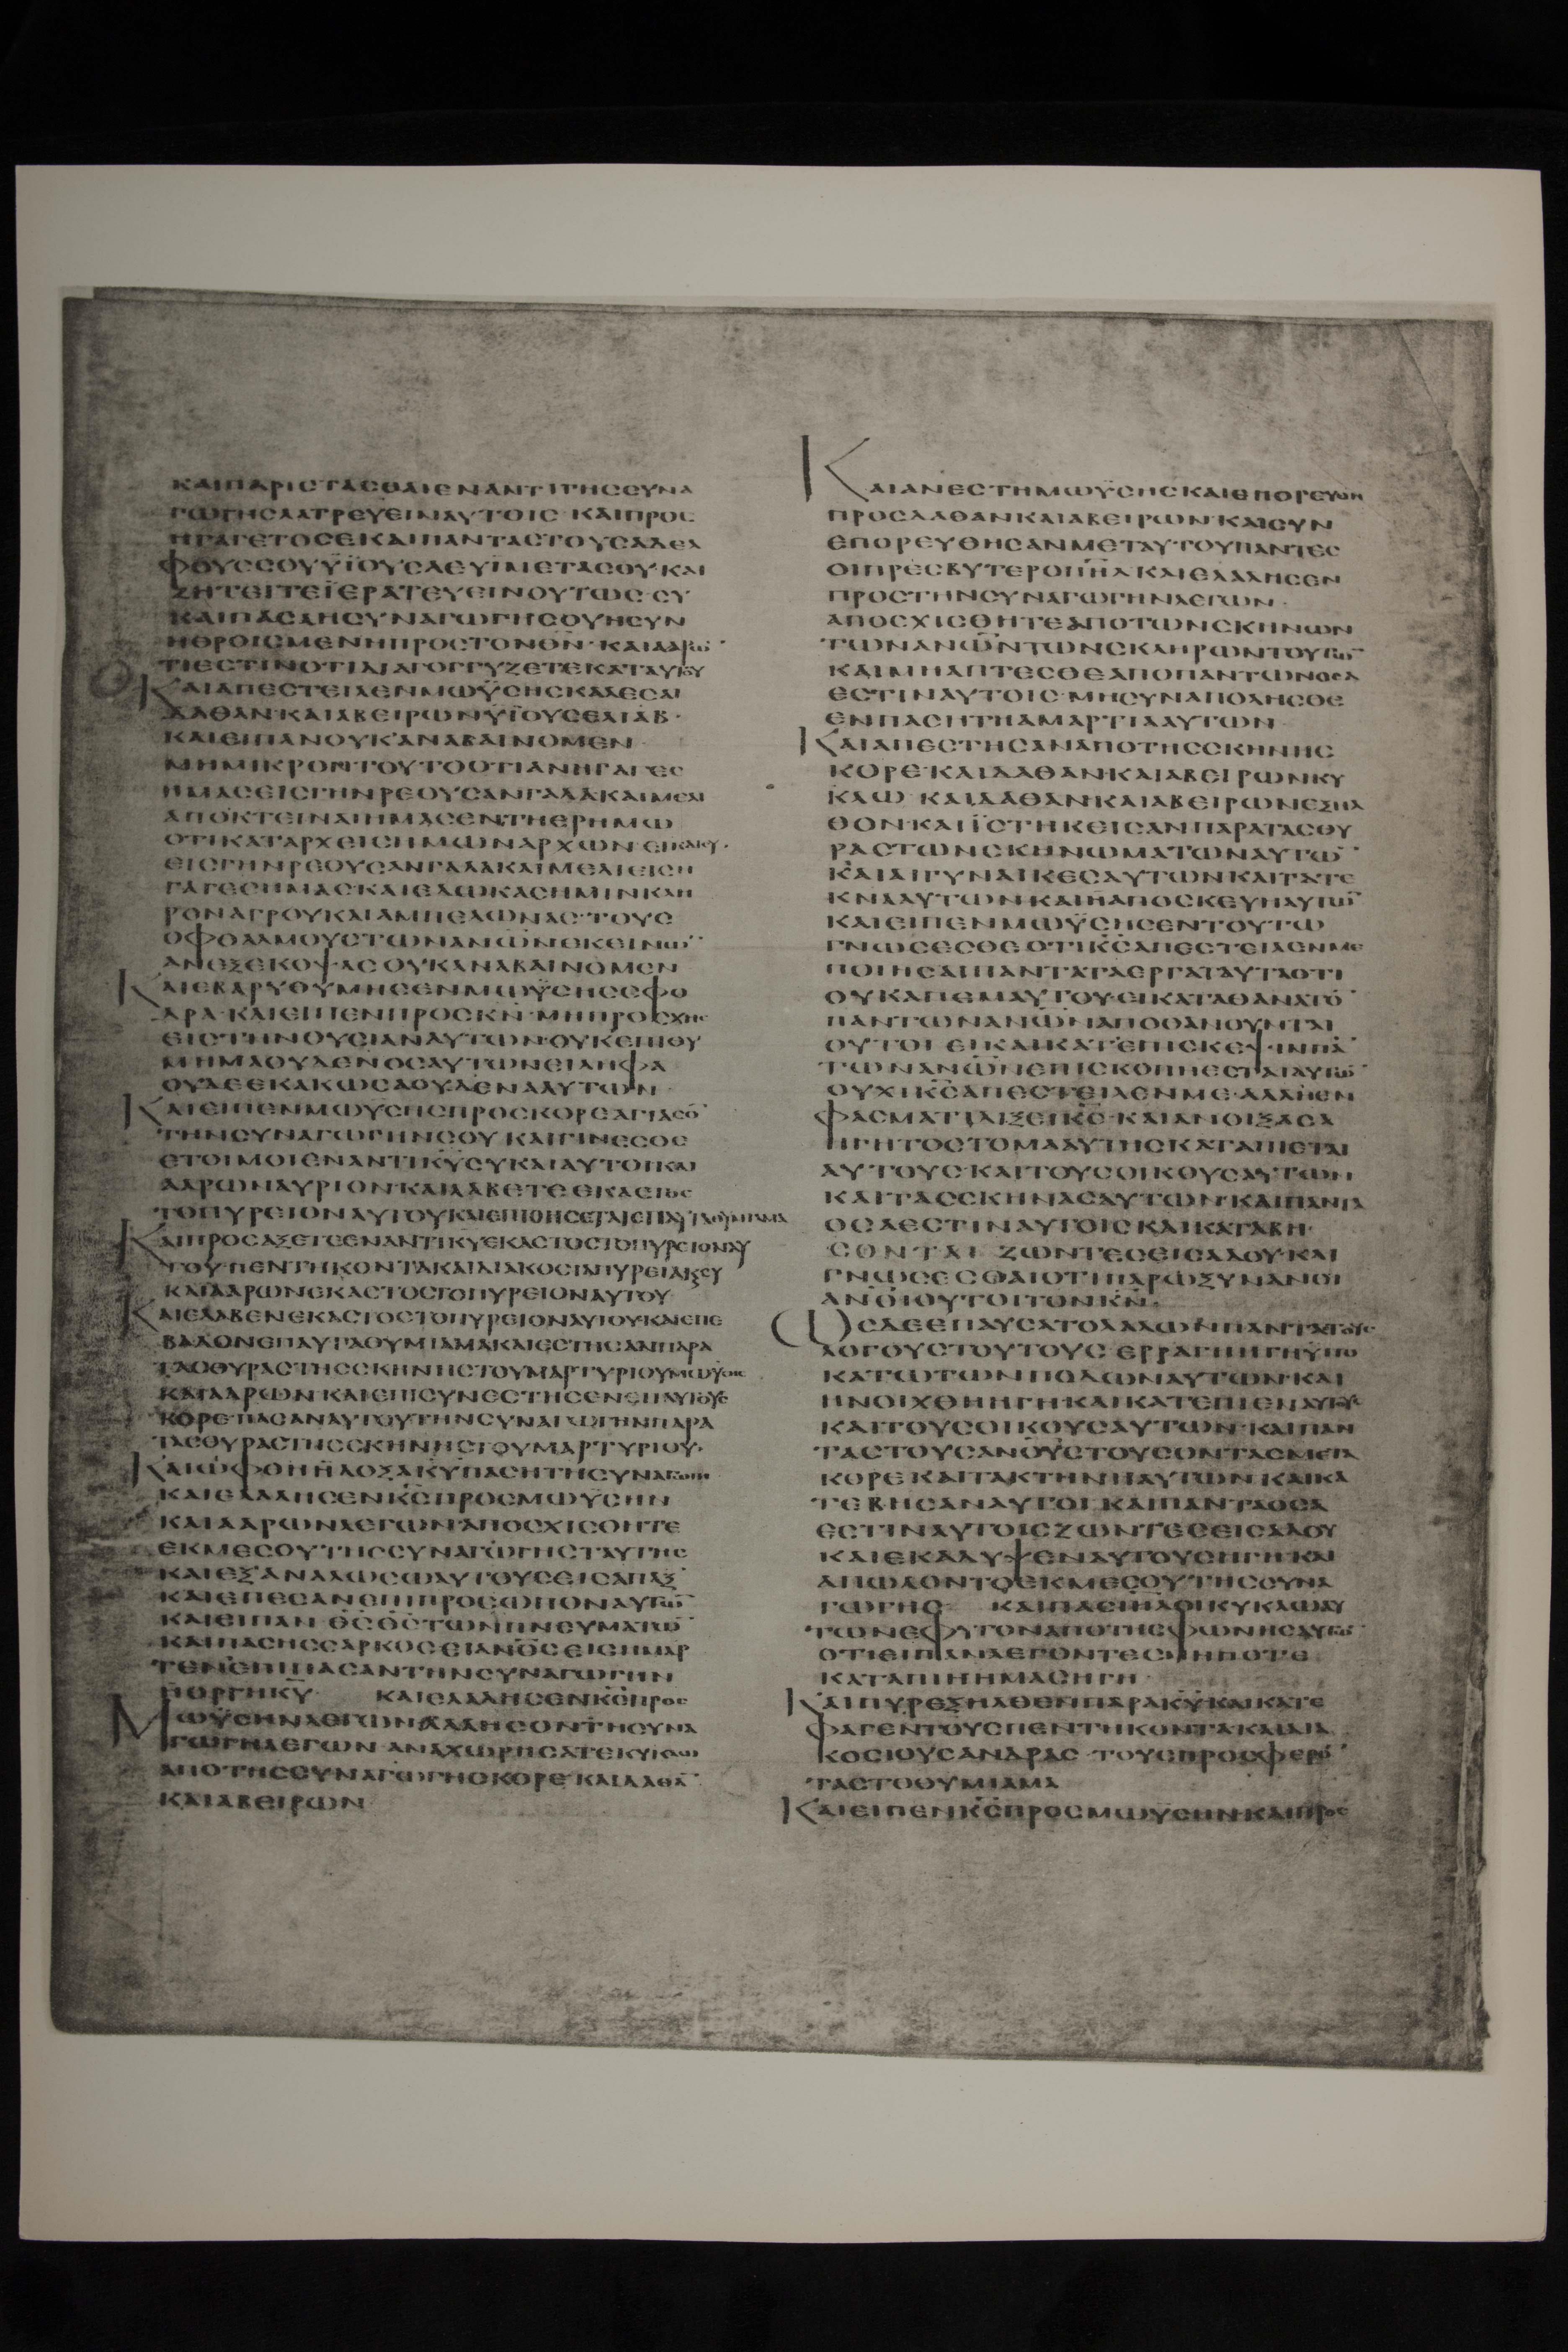 ΚΑΙΠΑΡΙϹΤΑϹΘΑΙΕΝΑΝΤΙΤΗϹϹΥΝΑ
ΓΩΓΗϹΛΑΤΡΕΥΕΙΝΑΥΤΟΙϹ·ΚΑΙΠΡΟϹ
ΗΓΑΓΕΤΟϹΕΚΑΙΠΑΝΤΑϹΤΟΥϹΑΔΕΛ
ΦΟΥϹϹΟΥΫΪΟΥϹΛΕΥΪΜΕΤΑϹΟΥ·ΚΑΙ
ΖΗΤΕΙΤΕΪΕΡΑΤΕΥΕΙΝΟΥΤΩϹ·ϹΥ
ΚΑΙΠΑϹΑΗϹΥΝΑΓΩΓΗϹΟΥΗϹΥΝ
ΗΘΡΟΙϹΜΕΝΗΠΡΟϹΤΟΝΘΝ̅·ΚΑΙΑΑΡΩ̅
ΤΙΕϹΤΙΝΟΤΙΔΙΑΓΟΓΓΥΖΕΤΕΚΑΤΑΥΤΟΥ
ΚΑΙΑΠΕϹΤΕΙΛΕΝΜΩΫϹΗϹΚΑΛΕϹΑΙ
ΔΑΘΑΝ·ΚΑΙΑΒΕΙΡΩΝΫΪΟΥϹΕΛΙΑΒ·
ΚΑΙΕΙΠΑΝΟΥΚΑΝΑΒΑΙΝΟΜΕΝ
ΜΗΜΙΚΡΟΝΤΟΥΤΟΟΤΙΑΝΗΓΑΓΕϹ
ΗΜΑϹΕΙϹΓΗΝΡΕΟΥϹΑΝΓΑΛΑΚΑΙΜΕΛΙ
ΑΠΟΚΤΕΙΝΑΙΗΜΑϹΕΝΤΗΕΡΗΜΩ
ΟΤΙΚΑΤΑΡΧΕΙϹΗΜΩΝΑΡΧΩΝ·ΕΙΚΑΙϹΥ·
ΕΙϹΓΗΝΡΕΟΥϹΑΝΓΑΛΑΚΑΙΜΕΛΙΕΙϹΗ
ΓΑΓΕϹΗΜΑϹΚΑΙΕΔΩΚΑϹΗΜΙΝΚΛΗ
ΡΟΝΑΓΡΟΥΚΑΙΑΜΠΕΛΩΝΑϹ·ΤΟΥϹ
ΟΦΘΑΛΜΟΥϹΤΩΝΑΝΩ̅Ν̅ΕΚΕΙΝΩ̅
ΑΝΕΞΕΚΟΨΑϹΟΥΚΑΝΑΒΑΙΝΟΜΕΝ
ΚΑΙΕΒΑΡΥΘΥΜΗϹΕΝΜΩΫϹΗϹϹΦΟ
ΔΡΑ·ΚΑΙΕΙΠΕΝΠΡΟϹΚΝ̅·ΜΗΠΡΟϹΧΗϹ
ΕΙϹΤΗΝΘΥϹΙΑΝΑΥΤΩΝ·ΟΥΚΕΠΙΘΥ
ΜΗΜΑΟΥΔΕΝΟϹΑΥΤΩΝΕΙΛΗΦΑ
ΟΥΔΕΕΚΑΚΩϹΑΟΥΔΕΝΑΑΥΤΩΝ·
ΚΑΙΕΙΠΕΝΜΩΥϹΗϹΠΡΟϹΚΟΡΕΑΓΙΑϹΟ̅
ΤΗΝϹΥΝΑΓΩΓΗΝϹΟΥΚΑΙΓΙΝΕϹΘΕ
ΕΤΟΙΜΟΙΕΝΑΝΤΙΚΥ̅ϹΥΚΑΙΑΥΤΟΙΚΑΙ
ΑΑΡΩΝΑΥΡΙΟΝ·ΚΑΙΛΑΒΕΤΕΕΚΑϹΤΟϹ
ΤΟΠΥΡΕΙΟΝΑΥΤΟΥΚΑΙΕΠΙΘΗϹΕΤΑΙΕΠΑΥΤΑΘΥΜΙΑΜΑ
ΚΑΙΠΡΟϹΑΞΕΤΕΕΝΑΝΤΙΚΥ̅ΕΚΑϹΤΟϹΤΟΠΥΡΕΙΟΝΑΥ
ΤΟΥ·ΠΕΝΤΗΚΟΝΤΑΚΑΙΔΙΑΚΟϹΙΑΠΥΡΕΙΑΚϹΥ
ΚΑΙΑΑΡΩΝΕΚΑϹΤΟϹΤΟΠΥΡΕΙΟΝΑΥΤΟΥ
ΚΑΙΕΛΑΒΕΝΕΚΑϹΤΟϹΤΟΠΥΡΕΙΟΝΑΥΤΟΥ·ΚΑΙΕΠΕ
ΒΑΛΟΝΕΠΑΥΤΑΘΥΜΙΑΜΑΚΑΙΕϹΤΗϹΑΝΠΑΡΑ
ΤΑϹΘΥΡΑϹΤΗϹϹΚΗΝΗϹΤΟΥΜΑΡΤΥΡΙΟΥΜΩΥϹΗϹ
ΚΑΙΑΑΡΩΝ·ΚΑΙΕΠΙϹΥΝΕϹΤΗϹΕΝΕΠΑΥΤΟΥϹ
ΚΟΡΕ·ΠΑϹΑΝΑΥΤΟΥΤΗΝϹΥΝΑΓΩΓΗΝΠΑΡΑ
ΤΑϹΘΥΡΑϹΤΗϹϹΚΗΝΗϹΤΟΥΜΑΡΤΥΡΙΟΥ·
ΚΑΙΩΦΘΗΗΔΟΞΑΚΥ̅ΠΑϹΗΤΗϹΥΝΑΓΩΓΗ
ΚΑΙΕΛΑΛΗϹΕΝΚϹ̅ΠΡΟϹΜΩΥϹΗΝ
ΚΑΙΑΑΡΩΝΛΕΓΩΝ·ΑΠΟϹΧΙϹΘΗΤΕ
ΕΚΜΕϹΟΥΤΗϹϹΥΝΑΓΩΓΗϹΤΑΥΤΗϹ
ΚΑΙΕΞΑΝΑΛΩϹΩΑΥΤΟΥϹΕΙϹΑΠΑΞ
ΚΑΙΕΠΕϹΑΝΕΠΙΠΡΟϹΩΠΟΝΑΥΤΩ̅
ΚΑΙΕΙΠΑΝ·Θ̅Ϲ̅Θ̅Ϲ̅ΤΩΝΠΝΕΥΜΑΤΩ̅
ΚΑΙΠΑϹΗϹϹΑΡΚΟϹΕΙΑΝΟ̅Ϲ̅ΕΙϹΗΜΑΡ
ΤΕΝ·ΕΠΙΠΑϹΑΝΤΗΝϹΥΝΑΓΩΓΗΝ
ΗΟΡΓΗΚΥ̅· ΚΑΙΕΛΑΛΗϹΕΝΚϹ̅ΠΡΟϹ
ΜΩΫϹΗΝΛΕΓΩΝΛΑΛΗϹΟΝΤΗϹΥΝΑ
ΓΩΓΗΛΕΓΩΝ·ΑΝΑΧΩΡΗϹΑΤΕΚΥΚΛΩ
ΑΠΟΤΗϹϹΥΝΑΓΩΓΗϹΚΟΡΕ·ΚΑΙΔΑΘΑ̅
ΚΑΙΑΒΕΙΡΩΝ
ΚΑΙΑΝΕϹΤΗΜΩΫϹΗϹΚΑΙΕΠΟΡΕΥΘΗ
ΠΡΟϹΔΑΘΑΝΚΑΙΑΒΕΙΡΩΝ·ΚΑΙϹΥΝ
ΕΠΟΡΕΥΘΗϹΑΝΜΕΤΑΥΤΟΥΠΑΝΤΕϹ
ΟΙΠΡΕϹΒΥΤΕΡΟΙΙΗ̅Λ·ΚΑΙΕΛΑΛΗϹΕΝ
ΠΡΟϹΤΗΝϹΥΝΑΓΩΓΗΝΛΕΓΩΝ·
ΑΠΟϹΧΙϹΘΗΤΕΑΠΟΤΩΝϹΚΗΝΩΝ
ΤΩΝΑΝΩ̅Ν̅ΤΩΝϹΚΛΗΡΩΝΤΟΥΤΩ̅
ΚΑΙΜΗΑΠΤΕϹΘΕΑΠΟΠΑΝΤΩΝΟϹΑ
ΕϹΤΙΝΑΥΤΟΙϹ·ΜΗϹΥΝΑΠΟΛΗϹΘΕ
ΕΝΠΑϹΗΤΗΑΜΑΡΤΙΑΑΥΤΩΝ
ΚΑΙΑΠΕϹΤΗϹΑΝΑΠΟΤΗϹϹΚΗΝΗϹ
ΚΟΡΕ·ΚΑΙΔΑΘΑΝ·ΚΑΙΑΒΕΙΡΩΝΚΥ
ΚΛΩ·ΚΑΙΔΑΘΑΝ·ΚΑΙΑΒΕΙΡΩΝΕΞΗΛ
ΘΟΝ·ΚΑΙΪϹΤΗΚΕΙϹΑΝΠΑΡΑΤΑϹΘΥ
ΡΑϹΤΩΝϹΚΗΝΩΜΑΤΩΝΑΥΤΩ̅
ΚΑΙΑΙΓΥΝΑΙΚΕϹΑΥΤΩΝΚΑΙΤΑΤΕ
ΚΝΑΑΥΤΩΝΚΑΙΗΑΠΟϹΚΕΥΗΑΥΤΩ̅
ΚΑΙΕΙΠΕΝΜΩΫϹΗϹΕΝΤΟΥΤΩ
ΓΝΩϹΕϹΘΕΟΤΙΚϹ̅ΑΠΕϹΤΕΙΛΕΝΜΕ
ΠΟΙΗϹΑΙΠΑΝΤΑΤΑΕΡΓΑΤΑΥΤΑΟΤΙ
ΟΥΚΑΠΕΜΑΥΤΟΥ·ΕΙΚΑΤΑΘΑΝΑΤΟ̅
ΠΑΝΤΩΝΑΝΩ̅Ν̅ΑΠΟΘΑΝΟΥΝΤΑΙ
ΟΥΤΟΙ·ΕΙΚΑΙΚΑΤΕΠΙϹΚΕΨΙΝΠΑ̅
ΤΩΝΑΝΩ̅Ν̅ΕΠΙϹΚΟΠΗΕϹΤΑΙΑΥΤΩ̅
ΟΥΧΙΚϹ̅ΑΠΕϹΤΕΙΛΕΝΜΕ·ΑΛΛΗΕΝ
ΦΑϹΜΑΤΙΔΙΞΕΙΚϹ̅·ΚΑΙΑΝΟΙΞΑϹΑ
ΗΓΗΤΟϹΤΟΜΑΑΥΤΗϹΚΑΤΑΠΙΕΤΑΙ
ΑΥΤΟΥϹ·ΚΑΙΤΟΥϹΟΙΚΟΥϹΑΥΤΩΝ
ΚΑΙΤΑϹϹΚΗΝΑϹΑΥΤΩΝ·ΚΑΙΠΑΝΤΑ
ΟϹΑΕϹΤΙΝΑΥΤΟΙϹΚΑΙΚΑΤΑΒΗ·
ϹΟΝΤΑΙ ΖΩΝΤΕϹΕΙϹΑΔΟΥ·ΚΑΙ
ΓΝΩϹΕϹΘΑΙΟΤΙΠΑΡΩΞΥΝΑΝΟΙ
ΑΝΟ̅ΙΟΥΤΟΙΤΟΝΚΝ̅·
ΩϹΔΕΕΠΑΥϹΑΤΟΛΑΛΩΝΠΑΝΤΑϹΤΟΥϹ
ΛΟΓΟΥϹΤΟΥΤΟΥϹ·ΕΡΡΑΓΗΗΓΗΫΠΟ
ΚΑΤΩΤΩΝΠΟΔΩΝΑΥΤΩΝ·ΚΑΙ
ΗΝΟΙΧΘΗΗΓΗ·ΚΑΙΚΑΤΕΠΙΕΝΑΥΤΟΥϹ
ΚΑΙΤΟΥϹΟΙΚΟΥϹΑΥΤΩΝ·ΚΑΙΠΑΝ
ΤΑϹΤΟΥϹΑΝΟ̅Υ̅Ϲ̅ΤΟΥϹΟΝΤΑϹΜΕΤΑ
ΚΟΡΕ·ΚΑΙΤΑΚΤΗΝΗΑΥΤΩΝ·ΚΑΙΚΑ
ΤΕΒΗϹΑΝΑΥΤΟΙ·ΚΑΙΠΑΝΤΑΟϹΑ
ΕϹΤΙΝΑΥΤΟΙϹΖΩΝΤΕϹΕΙϹΑΔΟΥ
ΚΑΙΕΚΑΛΥΨΕΝΑΥΤΟΥϹΗΓΗ·ΚΑΙ
ΑΠΩΛΟΝΤΟΕΚΜΕϹΟΥΤΗϹϹΥΝΑ
ΓΩΓΗϹ· ΚΑΙΠΑϹΙΗΛ̅ΟΙΚΥΚΛΩΑΥ
ΤΩΝΕΦΥΓΟΝΑΠΟΤΗϹΦΩΝΗϹΑΥΤΩ̅
ΟΤΙΕΙΠΑΝΛΕΓΟΝΤΕϹΜΗΠΟΤΕ
ΚΑΤΑΠΙΗΗΜΑϹΗΓΗ·
ΚΑΙΠΥΡΕΞΗΛΘΕΝΠΑΡΑΚΥ̅ΚΑΙΚΑΤΕ
ΦΑΓΕΝΤΟΥϹΠΕΝΤΗΚΟΝΤΑΚΑΙΔΙΑ
ΚΟϹΙΟΥϹΑΝΔΡΑϹ·ΤΟΥϹΠΡΟϹΦΕΡΟ̅
ΤΑϹΤΟΘΥΜΙΑΜΑ
ΚΑΙΕΙΠΕΝΚϹ̅ΠΡΟϹΜΩΥϹΗΝ·ΚΑΙΠΡΟϹ